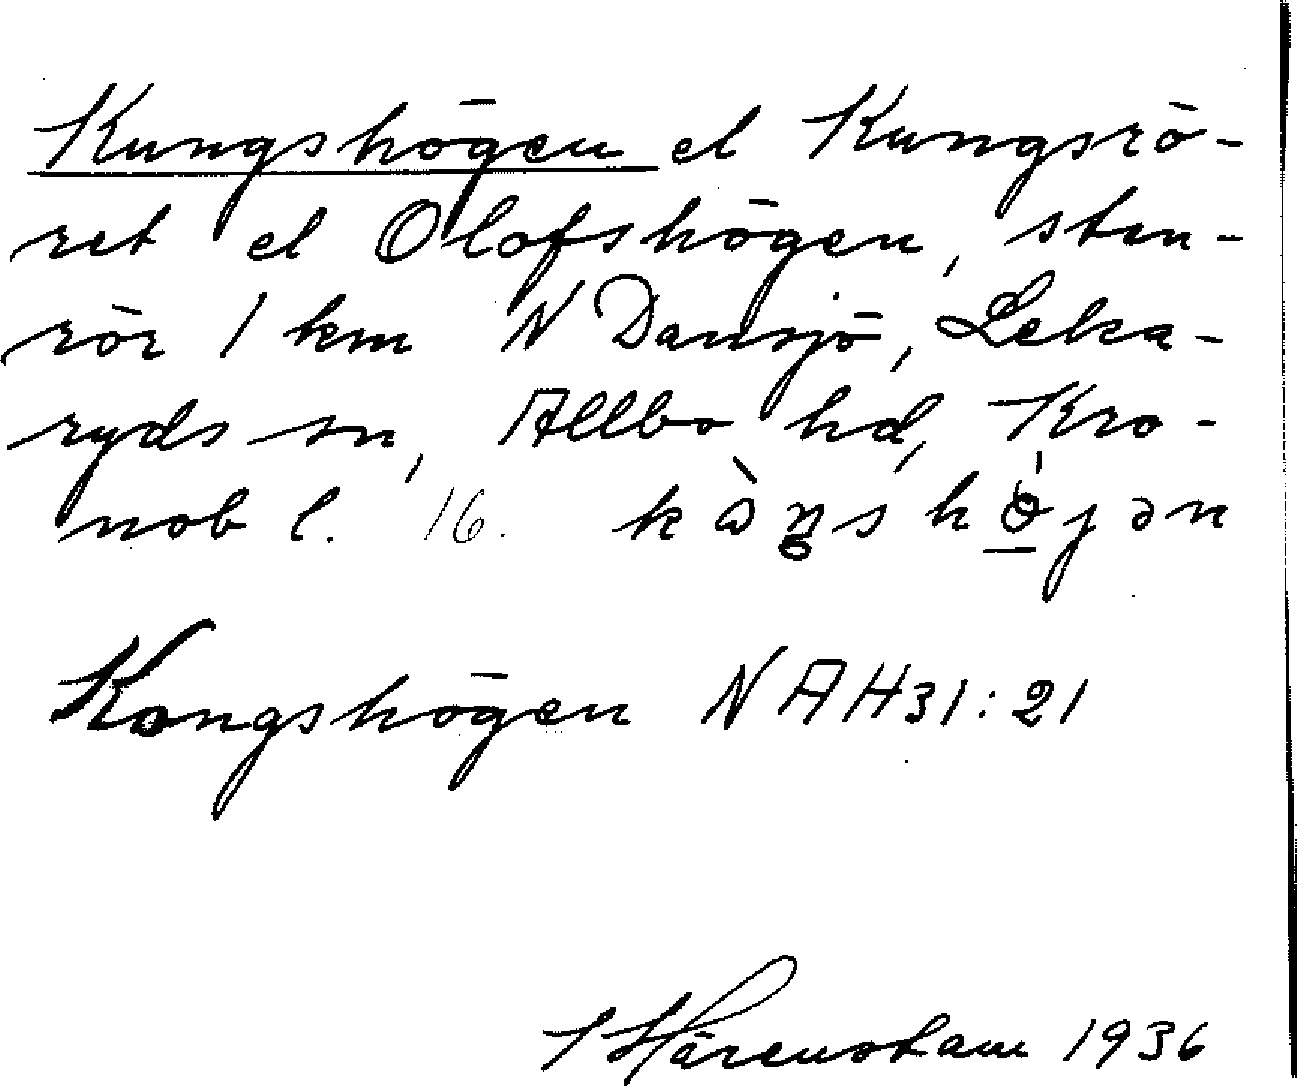 Kungshögen el Kungsrö-
ret el Olofshögen, sten-
rör 1 km N Dansjö, Leka-
ryds sn, Allbo hd, Kro-
nob l. 16.
Kongshögen NAH31:21
S Härenstam 1936